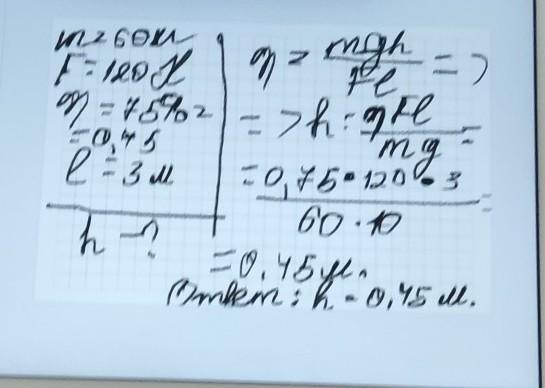 m = 60 кг
F = 120 Н
η = 75% =
= 0,75
l = 3 м
h - ?
η = mgh / Fl =>
=> h = ηFl / mg =
= 0,75 • 120 • 3 / 60 • 10 =
= 0,45 м.
Ответ: h = 0,45 м.